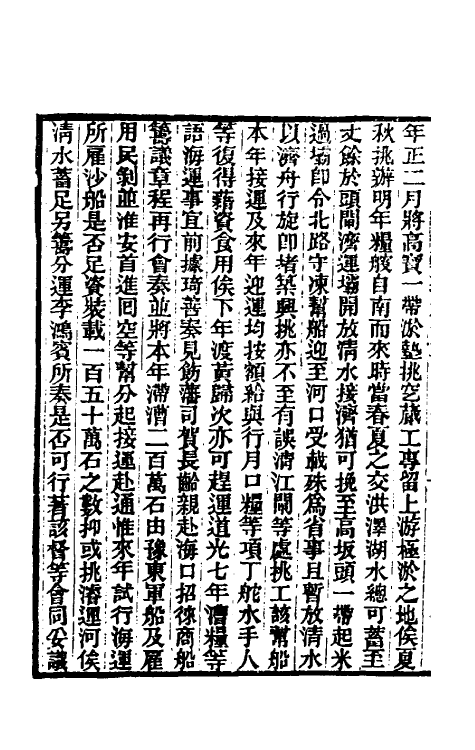 年正二月將高寶一帶淤墊挑空蕆工專留上游極淤之地俟夏
秋挑辦明年糧艘自南而來時當春夏之交洪澤湖水總可蓄至
丈餘於頭閘濟運壩開放清水接濟猶可挽至高坂頭一帶起米
過壩卽令北路守凍幫船迎至河口受載殊爲省事且暫放清水
以濟舟行旋卽堵築興挑亦不至有誤清江閘等處挑工該幫船
本年接運及來年迎運均按額給與行月口糧等項丁舵水手人
等復得藉資食用俟下年渡黃歸次亦可趕運道光七年漕糧等
語海運事宜前據琦善奏見飭藩司賀長齡親赴海口招徠商船
籌議章程再行會奏並將本年滯漕二百萬石由豫東軍船及雇
用民剝並淮安首進回空等幫分起接運赴通惟來年試行海運
所雇沙船是否足資裝載一百五十萬石之數抑或挑濬運河俟
清水蓄足另籌分運李鴻賓所奏是否可行著該督等會同妥議